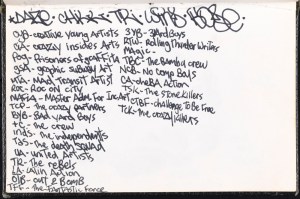 CYA-creative Young Artists
GIA-crazzy Insides Arts
POG-Prisoners of graffiti
GSA-graphic subway Art
MTA-Mad Transit Artist
ROC-Roc ON CITY
MAFIA-Master Artist For Inc Art
TCP-the crazy partners
BYB-Bad yard Boys
TC-the crew
inds-the independents
TDS-the death SQUAD
UA-united Artists
TR-the rebels
LA-Action
OTB-out 2 Bomb
TFF-the fantastic force
3YB-3yard Boys
RTW-Rolling Thunder Writers
Magic-
TBC-The Bambu crew
NCB-No Comp Boys
CA-cheBA Action
TSK-The stone killers
CTBF-challenge To Be Free
TCK-the crazy killers